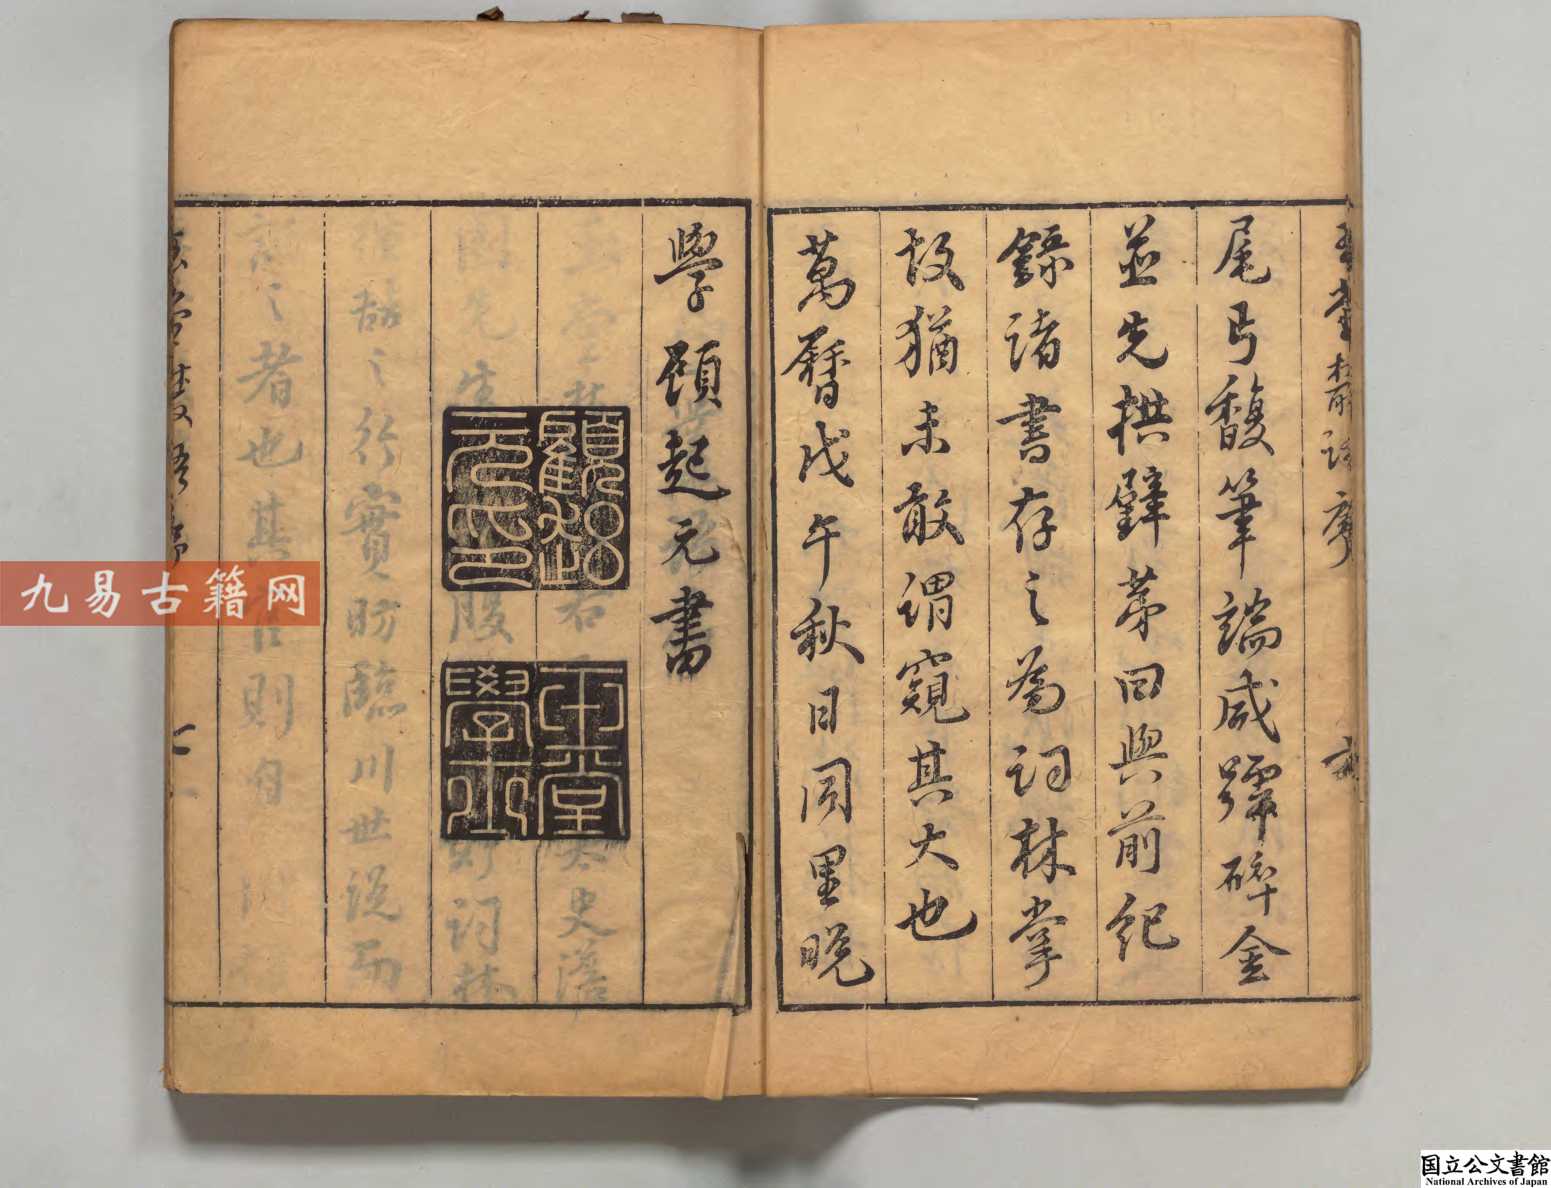 尾與馥筆端咸號碎金
並先拱璧第曰與前紀
錄諸書存之為詞林掌
故猶未敢謂窺其大也
萬曆戊午秋日同里晚
學顧起元書
顧起
元印
玉堂
學士
九易古籍网
国立公文書館
National Archives of Japan